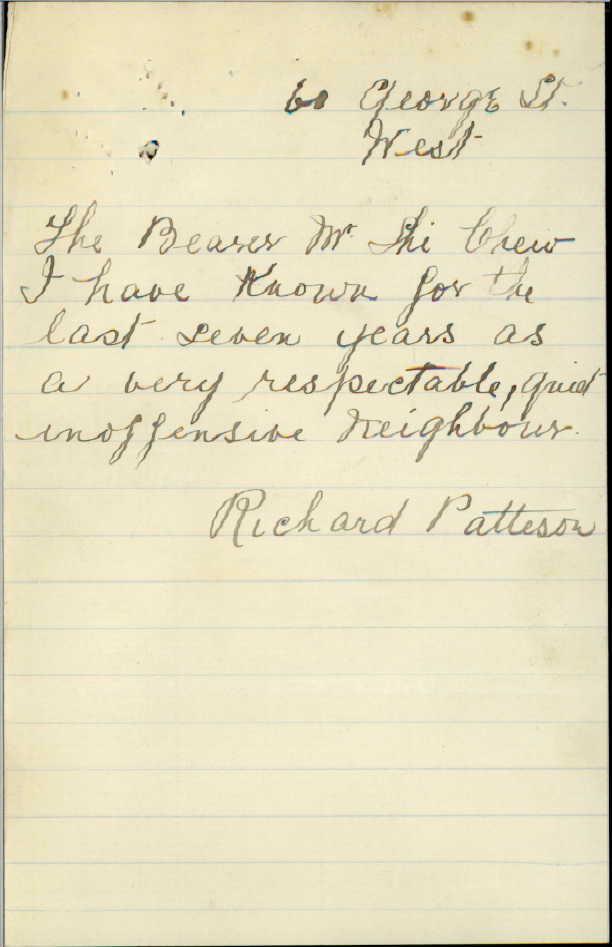 60 George St.
West
The Bearer Mr. Shi Chew
I have Known for the
last seven years as
a very respectable, quiet
inoffensive Neighbour.
Richard Patteson